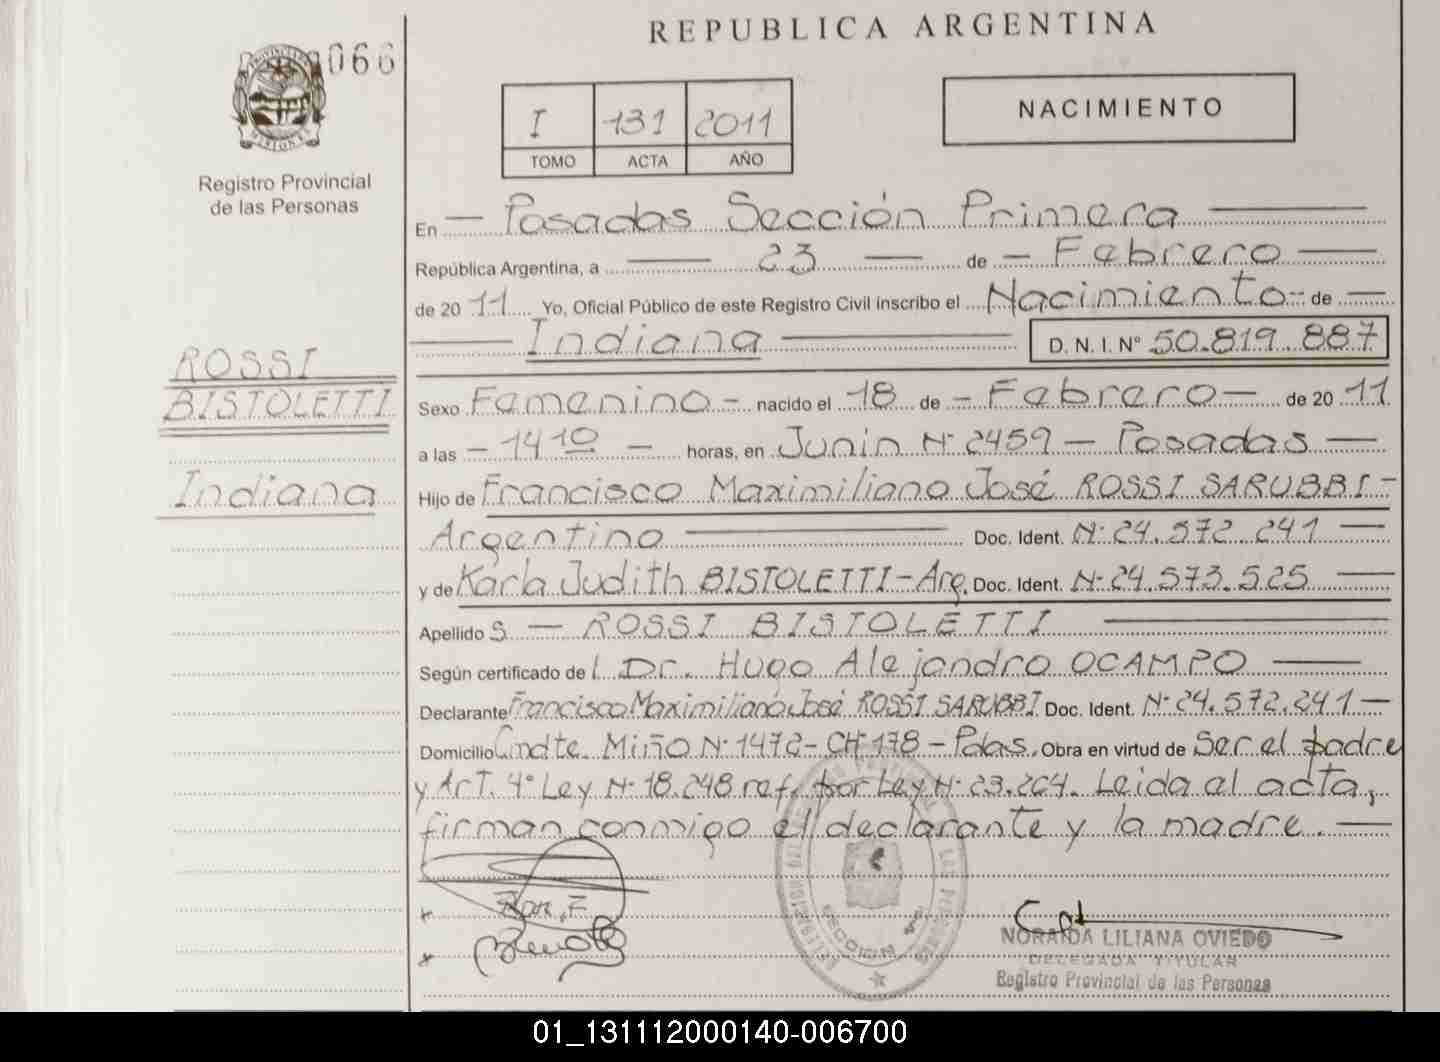 REPUBLICA ARGENTINA
066
I 131 2011
TOMO ACTA AÑO
NACIMIENTO
Registro Provincial
de las Personas
En — Posadas Sección Primera —
República Argentina, a — 23 — de — Febrero —
de 2011 Yo, Oficial Público de este Registro Civil inscribo el Nacimiento - de —
— Indiana — D. N. I. Nº 50.819.887
ROSSI
BISTOLETTI
Indiana
Sexo Femenino - nacido el 18 de - Febrero — de 2011
a las — 14 10 — horas, en Junin Nº 2459 — Posadas —
Hijo de Francisco Maximiliano José ROSSI SARUBBI -
Argentino — Doc. Ident. Nº 24.572.241 —
y de Karla Judith BISTOLETTI - Arg. Doc. Ident. Nº 24.573.525 —
Apellido s — ROSSI BISTOLETTI —
Según certificado de l Dr. Hugo Alejandro OCAMPO —
Declarante Francisco Maximiliano José ROSSI SARUBBI Doc. Ident. Nº 24.572.241 —
Domicilio Cmdte. Miño Nº 1472 - CH 178 - Pdas. Obra en virtud de Ser el padre
y Art. 4º Ley Nº 18.248 ref. por Ley Nº 23.264. Leida el acta,
firman conmigo el declarante y la madre. —
SECCION
NORAIDA LILIANA OVIEDO
DELEGADA TITULAR
Registro Provincial de las Personas
01_131112000140-006700